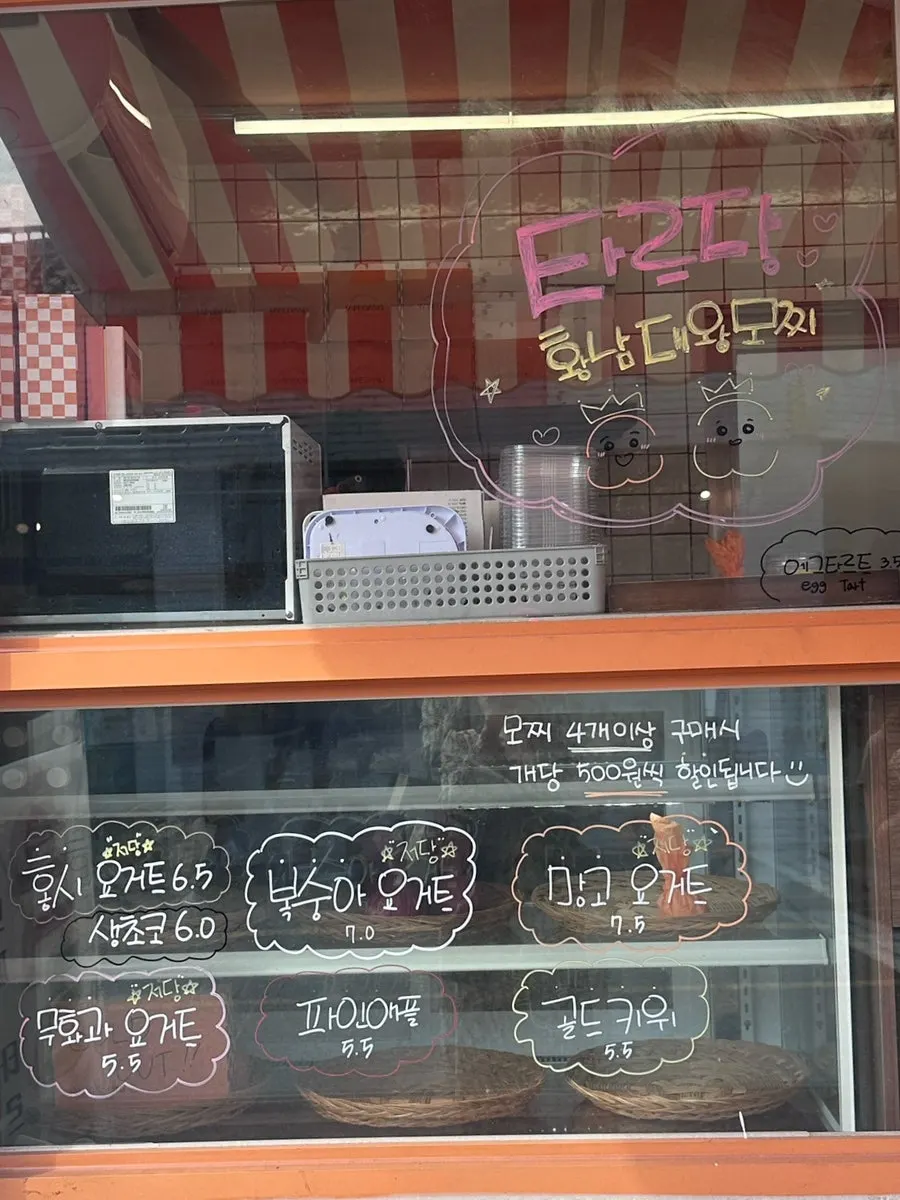 타르당
황남대왕모찌
에그타르트 3.5
egg Tart
모찌 4개이상 구매시
개당 500원씩 할인됩니다
저당
홍시 요거트 6.5
생초코 6.0
저당
복숭아 요거트
7.0
저당
망고 요거트
7.5
저당
무화과 요거트
5.5
파인애플
5.5
골드키위
5.5